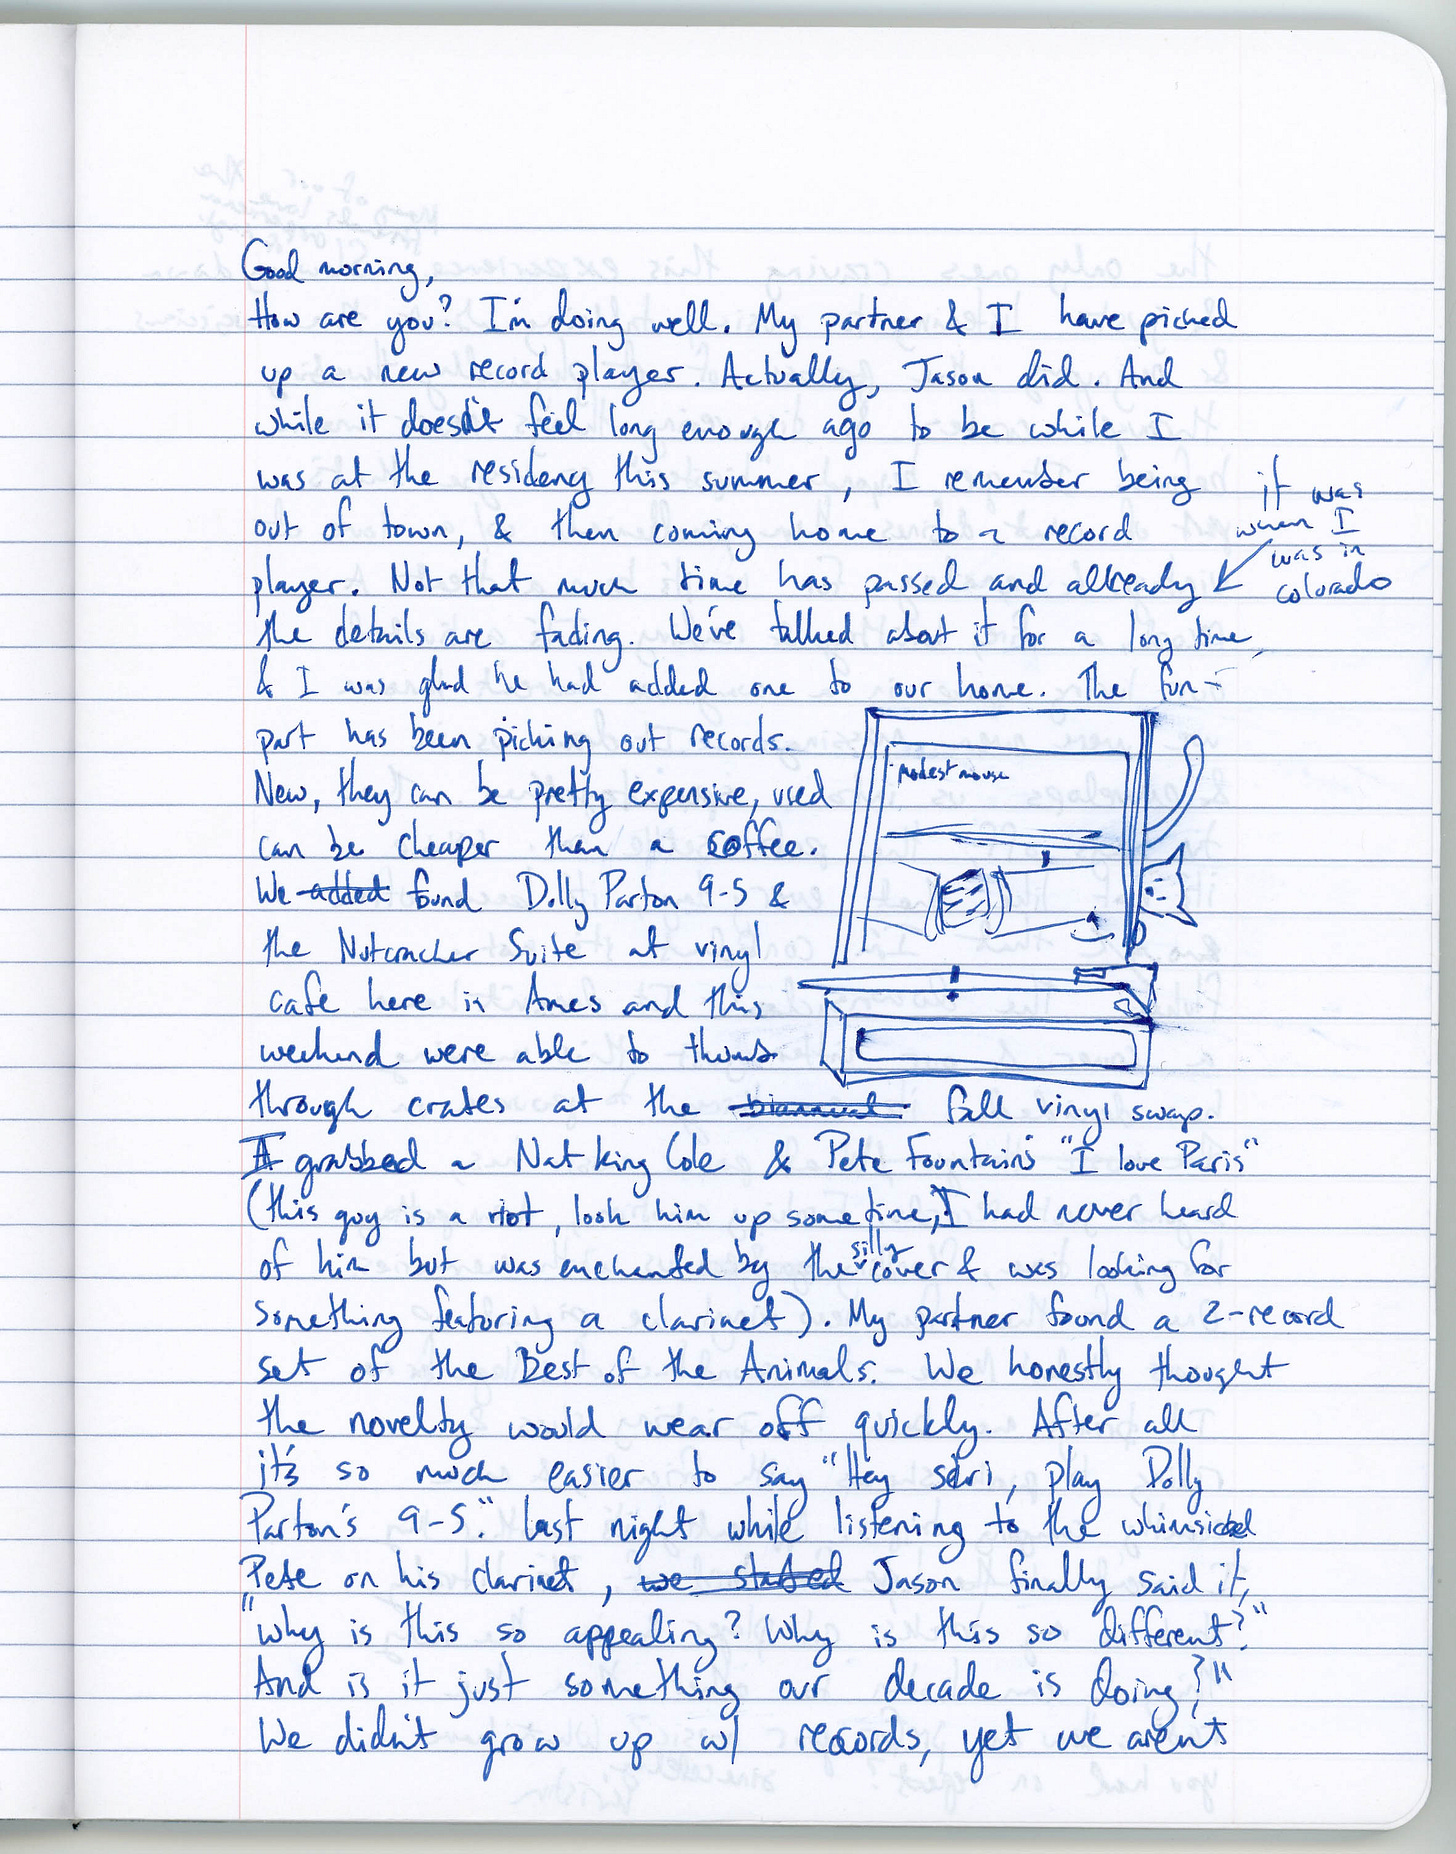 Good morning,
How are you? I'm doing well. My partner & I have picked
up a new record player. Actually, Jason did. And
while it doesn't feel long enough ago to be while I
was at the residency this summer, I remember being
out of town, & then coming home to a record
player. Not that much time has passed and already
it was
when I
was in
colorado
the details are fading. We've talked about it for a long time,
& I was glad he had added one to our home. The fun
part has been picking out records.
New, they can be pretty expensive, used
can be cheaper than a coffee.
We added found Dolly Parton 9-5 &
the Nutcracker Suite at vinyl
cafe here in Ames and this
weekend were able to thumb
modest mouse
through crates at the biannual fall vinyl swap.
I grabbed a Nat King Cole & Pete Fountain's "I love Paris"
(this guy is a riot, look him up sometime, I had never heard
of him but was enchanted by the silly cover & was looking for
something featuring a clarinet). My partner found a 2-record
set of the Best of the Animals. We honestly thought
the novelty would wear off quickly. After all
it's so much easier to say "Hey siri, play Dolly
Parton's 9-5." last night while listening to the whimsical
Pete on his clarinet, we started Jason finally said it,
"Why is this so appealing? Why is this so different?"
And is it just something our decade is doing?"
We didn't grow up w/ records, yet we aren't